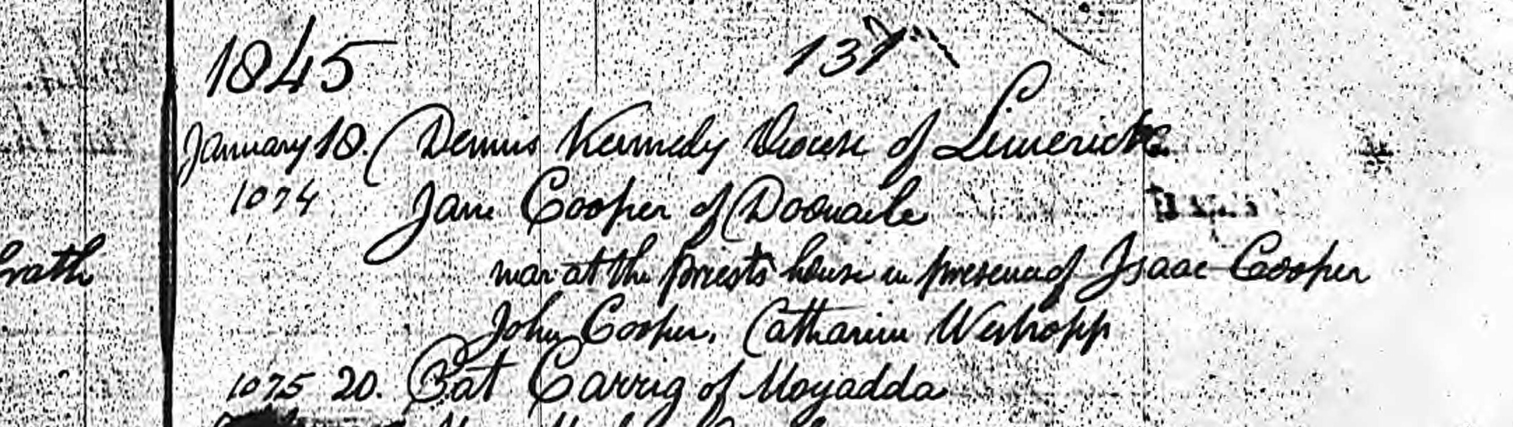 1845
137
January 10. Dennis Kennedy Diocese of Limerick
1074 Jane Cooper of Doonaile
mar at the priests house in presence of Isaac Cooper
John Cooper, Catharine Westropp
rath
1075 20. Pat Carrig of Moyadda